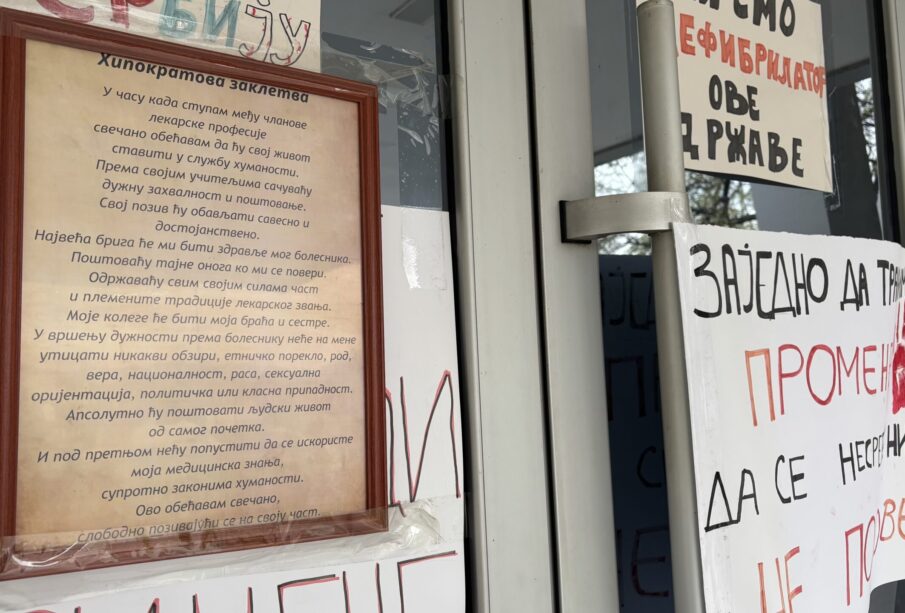 СРБИЈУ
Хипократова заклетва
У часу када ступам међу чланове
лекарске професије
свечано обећавам да ћу свој живот
ставити у службу хуманости.
Према својим учитељима сачуваћу
дужну захвалност и поштовање.
Свој позив ћу обављати савесно и
достојанствено.
Највећа брига ће ми бити здравље мог болесника.
Поштоваћу тајне онога ко ми се повери.
Одржаваћу свим својим силама част
и племените традиције лекарског звања.
Моје колеге ће бити моја браћа и сестре.
У вршењу дужности према болеснику неће на мене
утицати никакви обзири, етничко порекло, род,
вера, националност, раса, сексуална
оријентација, политичка или класна припадност.
Апсолутно ћу поштовати људски живот
од самог почетка.
И под претњом нећу попустити да се искористе
моја медицинска знања,
супротно законима хуманости.
Ово обећавам свечано,
слободно позивајући се на своју част.
СМО
ЕФИБРИЛАТОР
ОВЕ
ДРЖАВЕ
ЗАЈЕДНО ДА
ПРОМЕН
ДА СЕ
НЕ